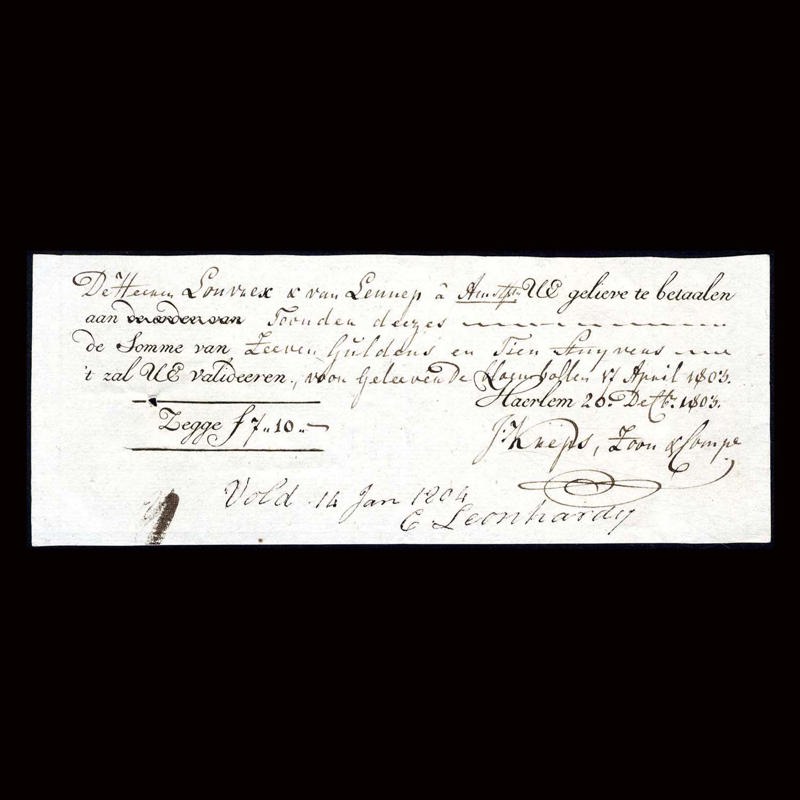 De Heeren Louvrex & van Lennep â Amstm UE gelieve te betaalen
aan de order van Toonder deezes
de Somme van Zeeven Guldens en Tien Stuyvers
't zal UE valideeren, voor Geleeverde 17 April 1803.
Haerlem 20 Dectr. 1803.
Zegge f 7.. 10..
Js. Kneps, Zoon & Compe
Vold 14 Jan 1804
C Leonhardy